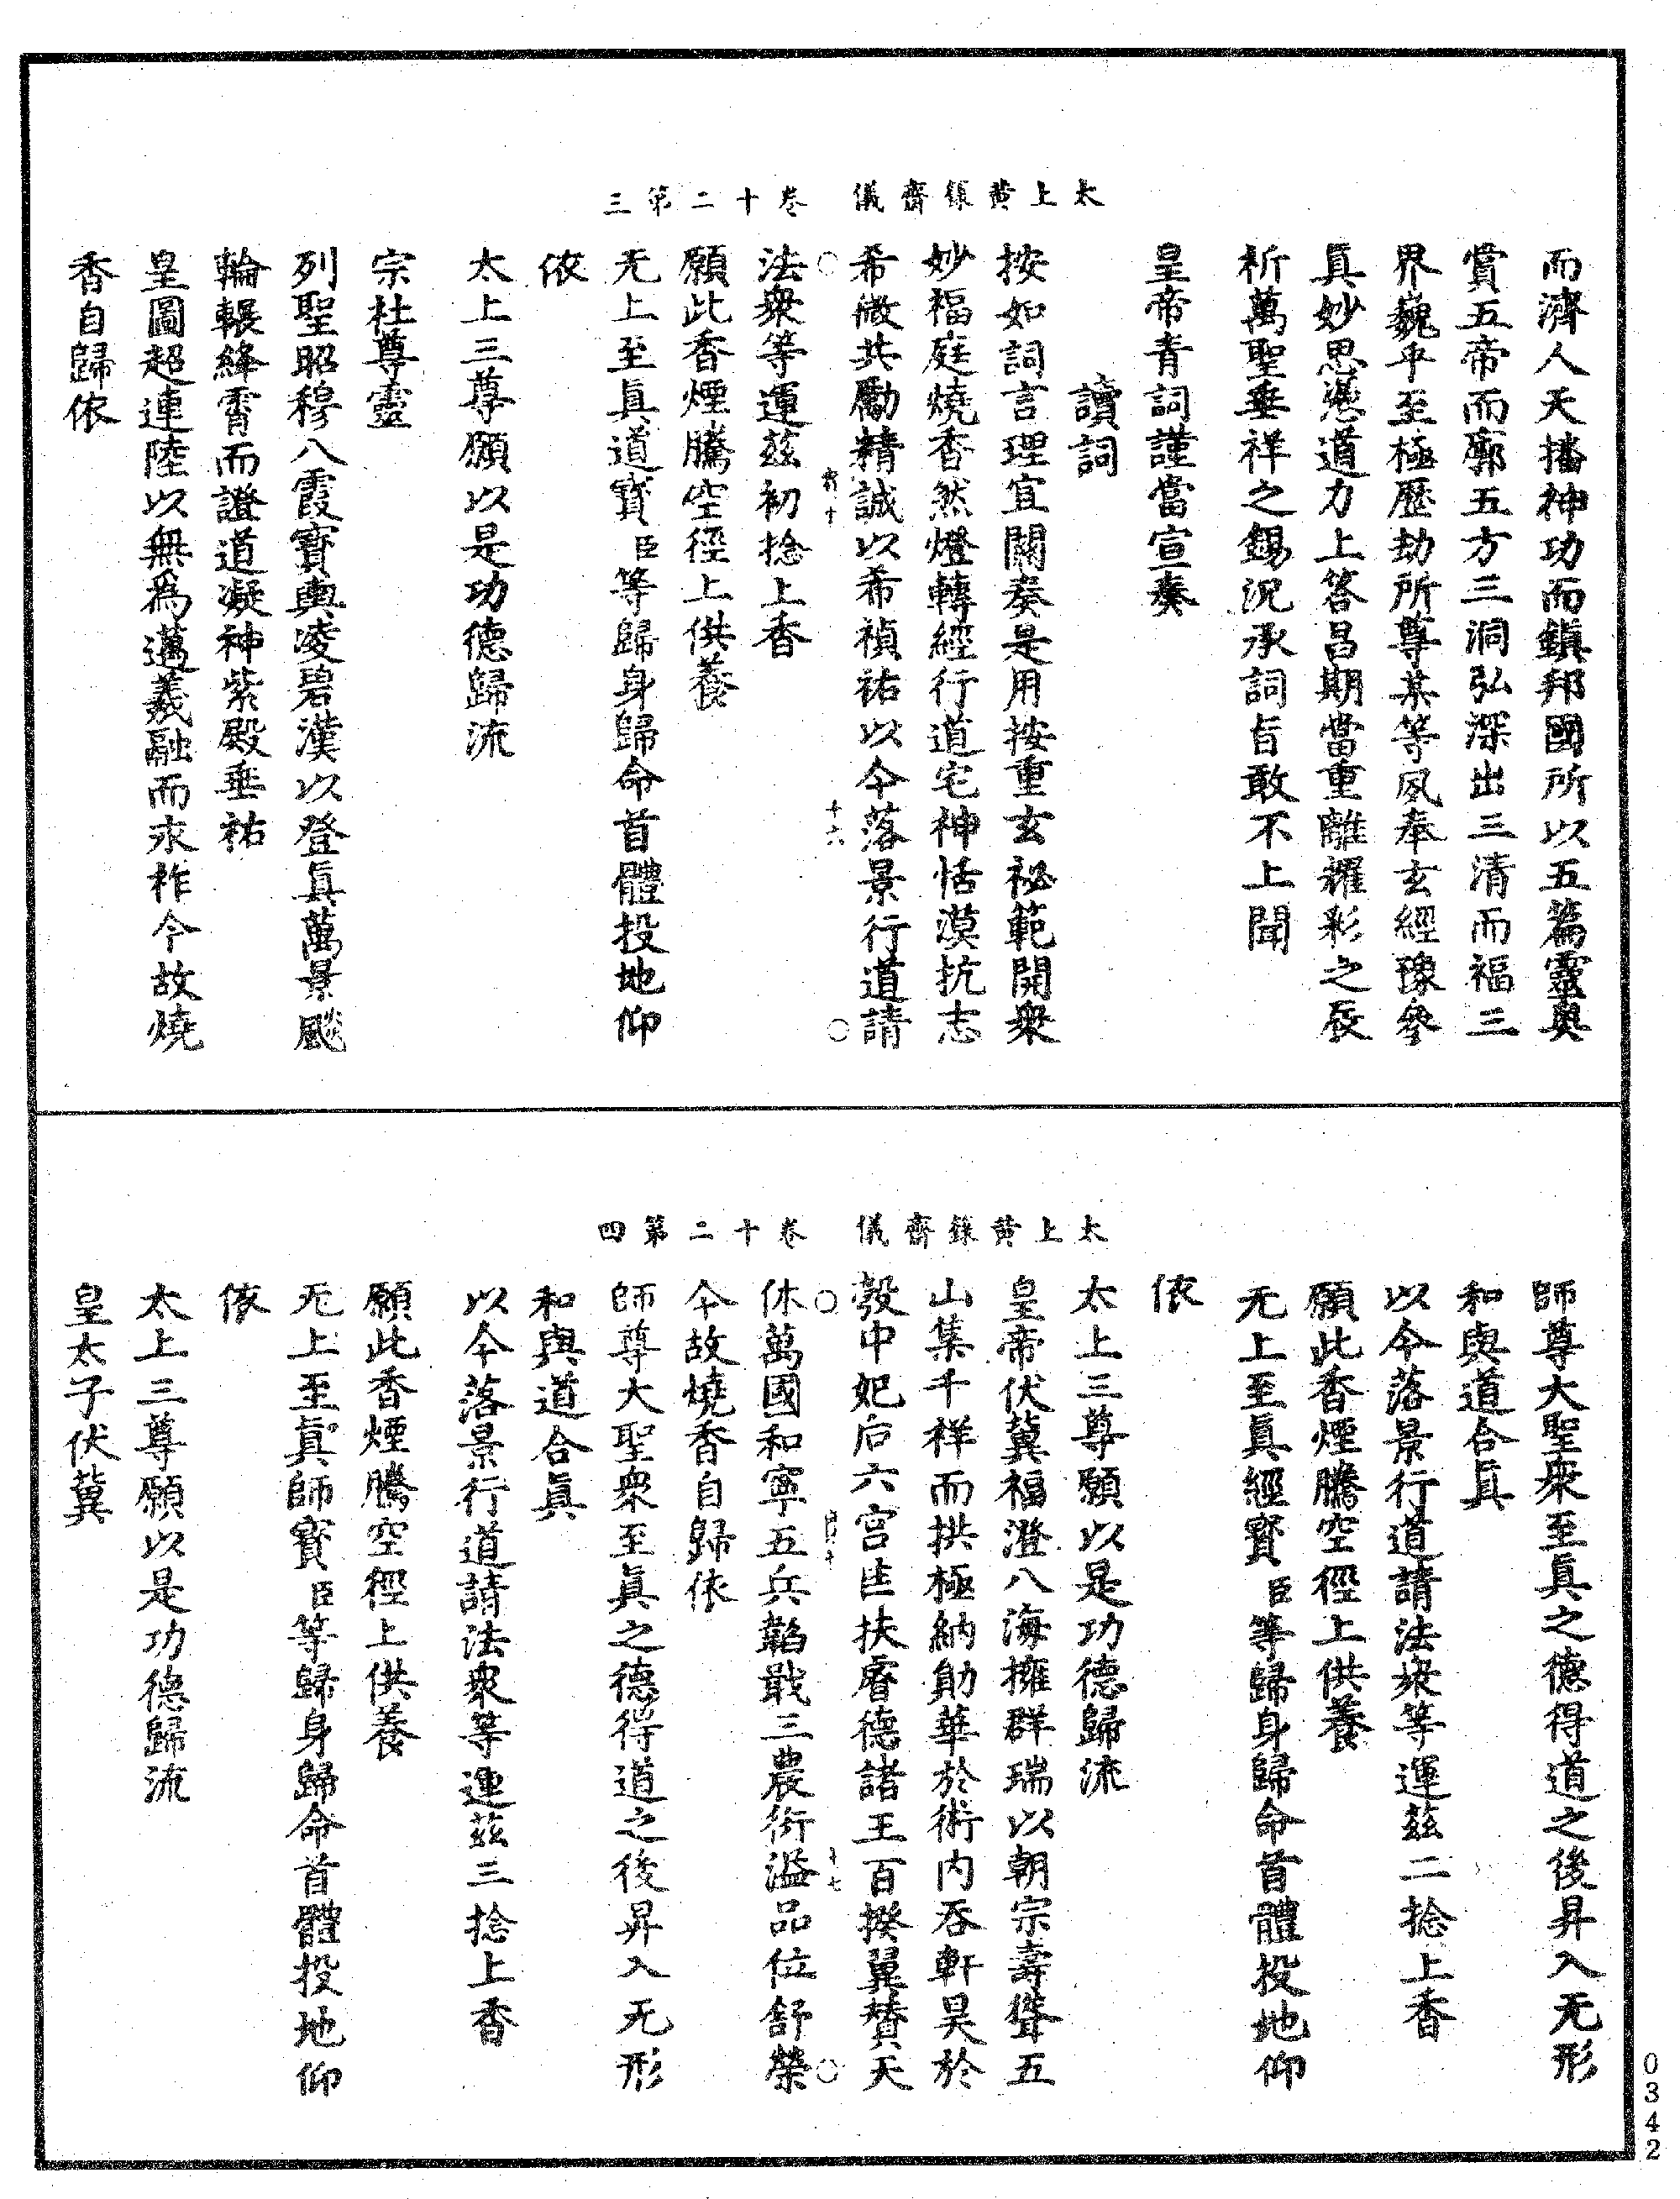 太上黃籙齋儀　卷十二第三
而濟人天播神功而鎮邦國所以五篇靈奧
賞五帝而廓五方三洞弘深出三清而福三
界巍乎至極歷劫所尊某等夙奉玄經豫參
真妙思憑道力上答昌期當重離耀彩之辰
祈萬聖垂祥之錫況承詞旨敢不上聞
皇帝青詞謹當宣奏
讀詞
按如詞言理宜關奏是用按重玄祕範開衆
妙福庭燒香然燈轉經行道宅神恬漠抗志
希微共勵精誠以希禎祐以今落景行道請
十六
法衆等運茲初捻上香
願此香煙騰空徑上供養
无上至真道寶臣等歸身歸命首體投地仰
依
太上三尊願以是功德歸流
宗社尊靈
列聖昭穆八霞寶輿凌碧漢以登真萬景飈
輪輾絳霄而證道凝神紫殿垂祐
皇圖超連陸以無爲邁羲融而永祚今故燒
香自歸依
太上黃籙齋儀　卷十二第四
師尊大聖衆至真之德得道之後昇入无形
和與道合真
以今落景行道請法衆等運茲二捻上香
願此香煙騰空徑上供養
无上至真經寶臣等歸身歸命首體投地仰
依
太上三尊願以是功德歸流
皇帝伏冀福澄八海擁群瑞以朝宗壽聳五
山集千祥而拱極納勛華於術內吞軒昊於
彀中妃后六宮匡扶睿德諸王百揆翼贊天
十七
休萬國和寧五兵韜戢三農衍溢品位舒榮
今故燒香自歸依
師尊大聖衆至真之德得道之後昇入无形
和與道合真
以今落景行道請法衆等運茲三捻上香
願此香煙騰空徑上供養
无上至真師寶臣等歸身歸命首體投地仰
依
太上三尊願以是功德歸流
皇太子伏冀
0342